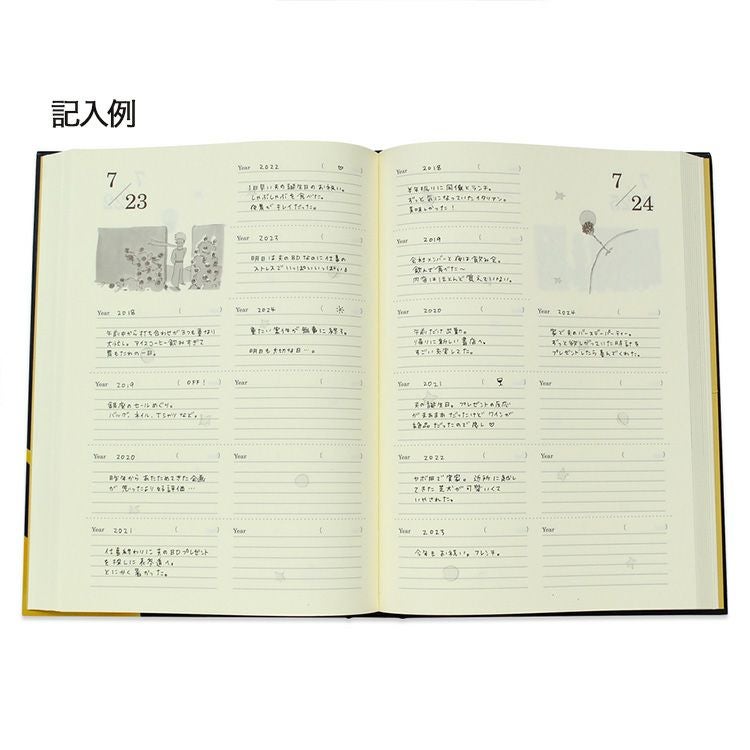 記入例
7/23
Year 2018 ( )
午前中から打ち合わせが3つも重なり
大忙し。アイスコーヒー飲みすぎて
胃もたれの一日。
Year 2019 ( OFF! )
銀座のセールめぐり。
バッグ、ネイル、Tシャツなど。
Year 2020 ( )
昨年からあたためてきた企画
が思ったより好評価…
Year 2021 ( )
仕事終わりに夫のBDプレゼント
を探しに表参道へ。
とにかく暑かった。
Year 2022 ( ♡ )
1日早い夫の誕生日のお祝い。
しゃぶしゃぶを食べた。
夜景がキレイだった。
Year 2023 ( )
明日は夫のBDなのに仕事の
ストレスでいっぱいいっぱい!
Year 2024 ( ☀ )
重たい案件が無事に終了。
明日も大切な日…。
Year ( )
Year ( )
Year ( )
7/24
Year 2018 ( )
半年振りに同僚とランチ。
ずっと気になっていたイタリアン。
美味しかった!
Year 2019 ( )
会社メンバーと夜は飲み会。
飲んで食べた〜
内容はほとんど覚えていない。
Year 2020 ( )
午前だけ出勤。
帰りに新しい書店へ。
すごい充実してた。
Year 2021 ( )
夫の誕生日。プレゼントの反応
がまあまあだったけどワインが
絶品だったので良し♡
Year 2022 ( )
サボ日で実家。近所に
てきた芝犬が可愛いくて
いやされた。
Year 2023 ( )
今年もお祝い。フレンチ。
Year 2024 ( )
家で夫のバースデーパーティー。
ずっと欲しがっていた時計を
プレゼントしたら喜んでくれた。
Year ( )
Year ( )
Year ( )